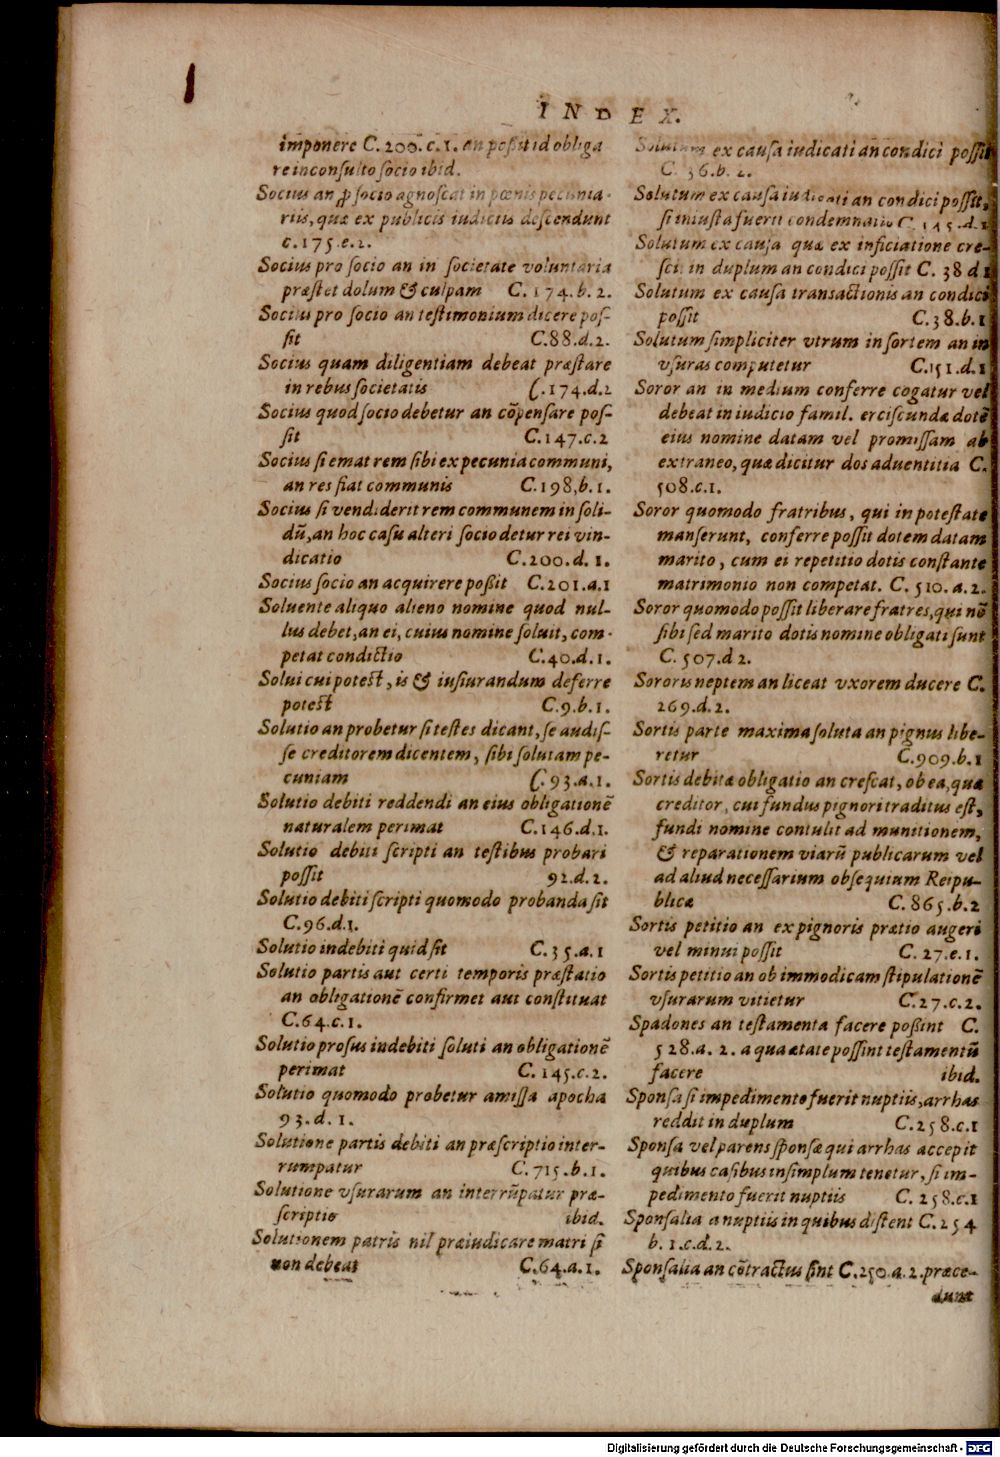 INDEX.
imponere C. 200. c. 1. an possit id obliga
re inconsulto socio ibid.
Socius an ꝓ socio agnoscat in pœnis pecunia-
riis, quæ ex publicis iudiciis descendunt
c. 175. e. 2.
Socius pro socio an in societate voluntaria
præstet dolum & culpam C. 174. b. 2.
Socius pro socio an testimonium dicere pos-
sit C. 88. d. 2.
Socius quam diligentiam debeat præstare
in rebus societatis C. 174. d. 2
Socius quod socio debetur an cōpensare pos-
sit C. 147. c. 2
Socius si emat rem sibi ex pecunia communi,
an res fiat communis C. 198, b. 1.
Socius si vendiderit rem communem in soli-
dū, an hoc casu alteri socio detur rei vin-
dicatio C. 200. d. 1.
Socius socio an acquirere poßit C. 201. a. 1
Soluente aliquo alieno nomine quod nul-
lus debet, an ei, cuius nomine soluit, com-
petat condictio C. 40. d. 1.
Solui cui potest, is & iusiurandum deferre
potest C. 9. b. 1.
Solutio an probetur si testes dicant, se audis-
se creditorem dicentem, sibi solutam pe-
cuniam C. 93. a. 1.
Solutio debiti reddendi an eius obligationē
naturalem perimat C. 146. d. 1.
Solutio debiti scripti an testibus probari
possit 92. d. 2.
Solutio debiti scripti quomodo probanda sit
C. 96. d. 1.
Solutio indebiti quid sit C. 35. a. 1
Solutio partis aut certi temporis præstatio
an obligationē confirmet aut constituat
C. 64. c. 1.
Solutio prosus indebiti soluti an obligationē
perimat C. 145. c. 2.
Solutio quomodo probetur amissa apocha
93. d. 1.
Solutione partis debiti an præscriptio inter-
rumpatur C. 715. b. 1.
Solutione vsurarum an interrūpatur præ-
scriptio ibid.
Solutionem patris nil præiudicare matri si
non debeat C. 64. a. 1.
Solutum ex causa iudicati an condici possit
C. 36. b. 2.
Solutum ex causa iudicati an condici possit,
si iniusta fuerit condemnatio C. 145. d. 1
Solutum ex causa quæ ex inficiatione cre-
scit in duplum an condici possit C. 38 d 1
Solutum ex causa transactionis an condici
possit C. 38. b. 1
Solutum simpliciter vtrum in sortem an in
vsuras computetur C. 151. d. 1
Soror an in medium conferre cogatur vel
debeat in iudicio famil. erciscundæ dotē
eius nomine datam vel promissam ab
extraneo, quæ dicitur dos aduentitia C.
508. c. 1.
Soror quomodo fratribus, qui in potestate
manserunt, conferre possit dotem datam
marito, cum ei repetitio dotis constante
matrimonio non competat. C. 510. a. 2.
Soror quomodo possit liberare fratres, qui nō
sibi sed marito dotis nomine obligati sunt
C. 507. d 2.
Sororis neptem an liceat vxorem ducere C.
269. d. 2.
Sortis parte maxima soluta an pignus libe-
retur C. 909. b. 1
Sortis debitæ obligatio an crescat, ob ea, quæ
creditor, cui fundus pignori traditus est,
fundi nomine contulit ad munitionem,
& reparationem viarū publicarum vel
ad aliud necessarium obsequium Reipu-
blicæ C. 865. b. 2
Sortis petitio an ex pignoris prætio augeri
vel minui possit C. 27. e. 1.
Sortis petitio an ob immodicam stipulationē
vsurarum vitietur C. 27. c. 2.
Spadones an testamenta facere poßint C.
528. a. 2. a qua ætate possint testamentū
facere ibid.
Sponsa si impedimento fuerit nuptiis, arrhas
reddit in duplum C. 258. c. 1
Sponsa vel parens sponsæ qui arrhas accepit
quibus casibus in simplum tenetur, si im-
pedimento fuerit nuptiis C. 258. c. 1
Sponsalia a nuptiis in quibus distent C. 254
b. 1. c. d. 2.
Sponsalia an cōtractus sint C. 250. a. 2. præce-
dunt
Digitalisierung gefördert durch die Deutsche Forschungsgemeinschaft - DFG